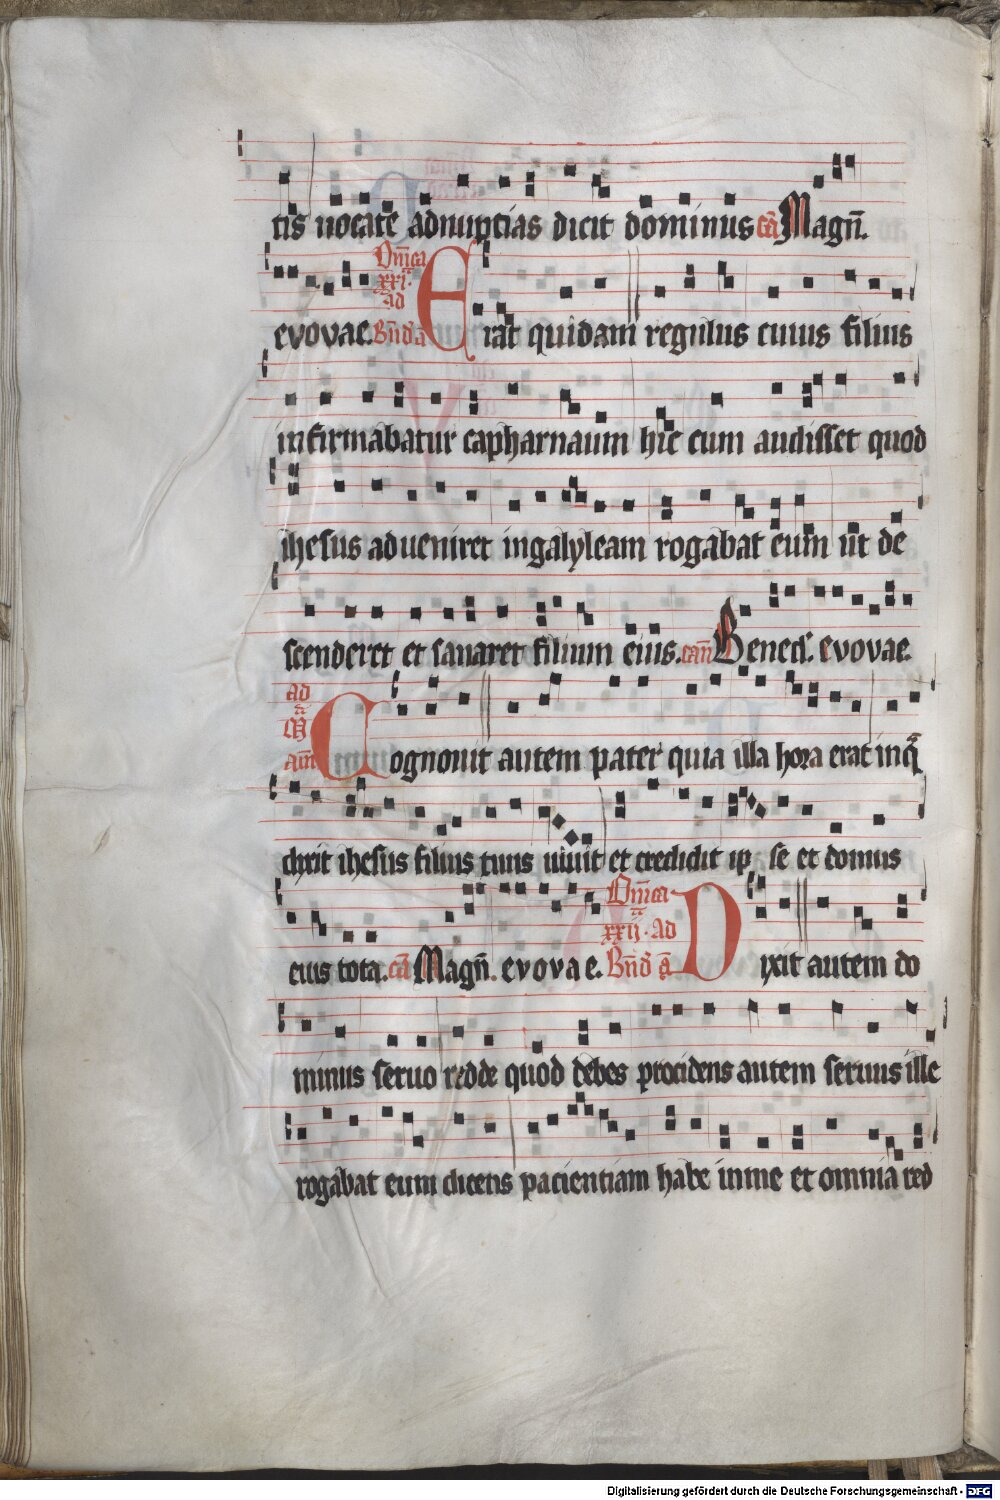 tis uocate adnuptias dicit dominus cā Magn̄.
evovae. Dn̄ica xxi. ad Bn̄d a Erat quidam regulus cuius filius
infirmabatur capharnaum hic cum audisset quod
ihesus adueniret ingalyleam rogabat eum ut de
scenderet et sanaret filium eius. can̄ Bened̄. evovae.
ad M an̄ Cognouit autem pater quia illa hora erat inq̄
dixit ihesus filius tuus uiuit et credidit ip se et domus
eius tota. cā Magn̄. evovae. Dn̄ica xxij. ad Bn̄d ā Dixit autem do
minus seruo redde quod debes procidens autem seruus ille
rogabat eum dicens pacientiam habe inme et omnia red
Digitalisierung gefördert durch die Deutsche Forschungsgemeinschaft - DFG